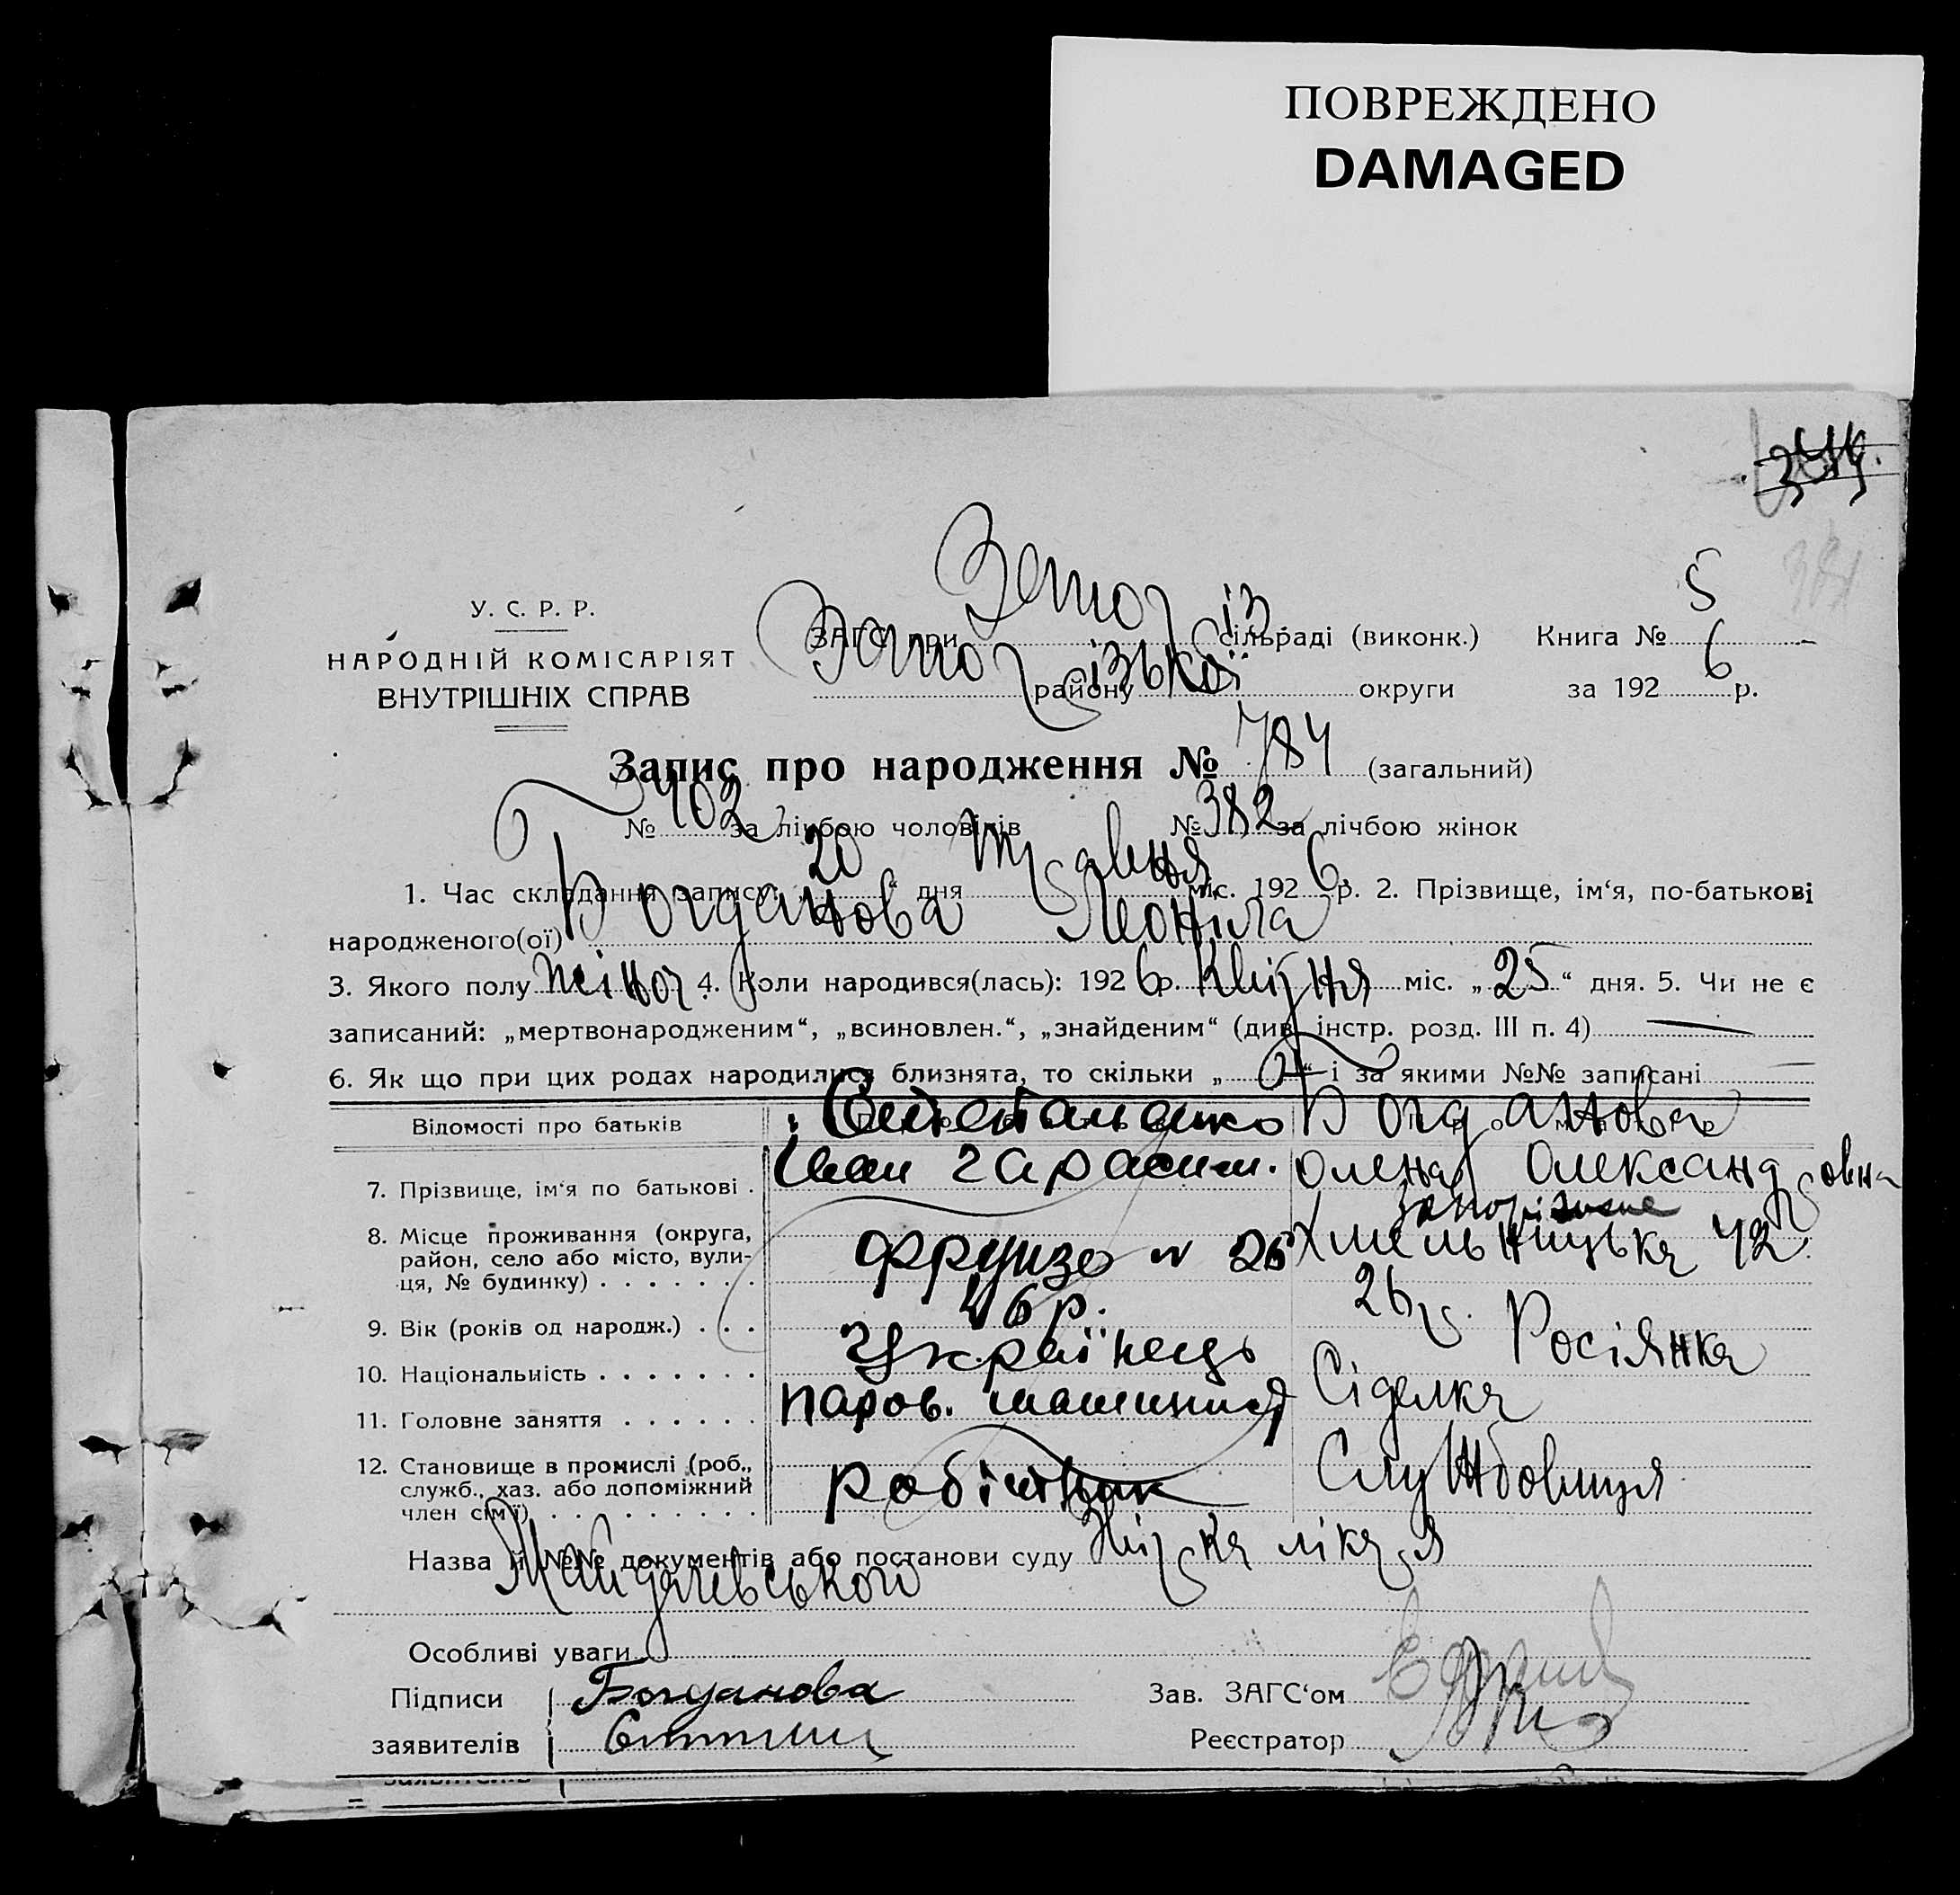 ПОВРЕЖДЕНО
DAMAGED
У. С. Р. Р.
НАРОДНІЙ КОМІСАРІЯТ
ВНУТРІШНІХ СПРАВ
ЗАГС при Запоріз. сільраді (виконк.) Книга № 5
Запорізької району округи за 192 6 р.
Запис про народження № 784 (загальний)
№ 402 за лічбою чоловіків № 382 за лічбою жінок
1. Час складання запису: „ 20 “ дня Травня міс. 192 6 р. 2. Прізвище, ім‘я, по-батькові
народженого(ої) Богданова Леоніла
3. Якого полу жіноч. 4. Коли народився(лась): 192 6 р. Квітня міс. „ 25 “ дня. 5. Чи не є
записаний: „мертвонародженим“, „всиновлен.“, „знайденим“ (див. інстр. розд. III п. 4) —
6. Як що при цих родах народилися близнята, то скільки „ “ і за якими №№ записані
Відомості про батьків Богданова
7. Прізвище, ім‘я по батькові . Іван Гарасим. Олена Олександровна
8. Місце проживання (округа,
район, село або місто, вули-
ця, № будинку) . . . . . . . Фрунзе № 26 Хмельницька 42
9. Вік (років од народж.) . . . 46 р. 26 р.
10. Національність . . . . . . . Українець Росіянка
11. Головне заняття . . . . . . паров. машиніст Сіделка
12. Становище в промислі (роб.,
служб., хаз. або допоміжний
член сім‘ї) . . . . . . . . . . робітник Службовиця
Назва й №№ документів або постанови суду лікаря
Особливі уваги
Підписи Богданова Зав. ЗАГС‘ом
заявителів Реєстратор